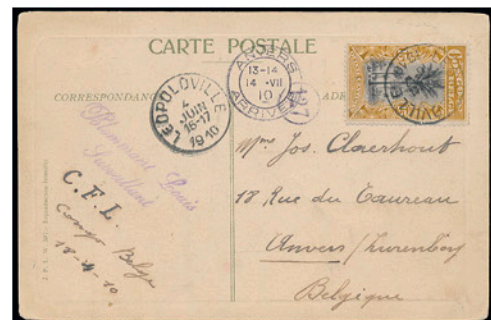 CARTE POSTALE
CORRESPONDANCE
ADR
LEOPOLDVILLE
4
JUIN
16-17
1910
ANVERS
13-14
14 - VII
10
ARRIVEE
197
Louis
Surveillant
C. F. L.
Congo Belge
18-4-10.
Mme Jos. Claerhout
18 Rue du Taureau
Anvers / Zurenborg
Belgique